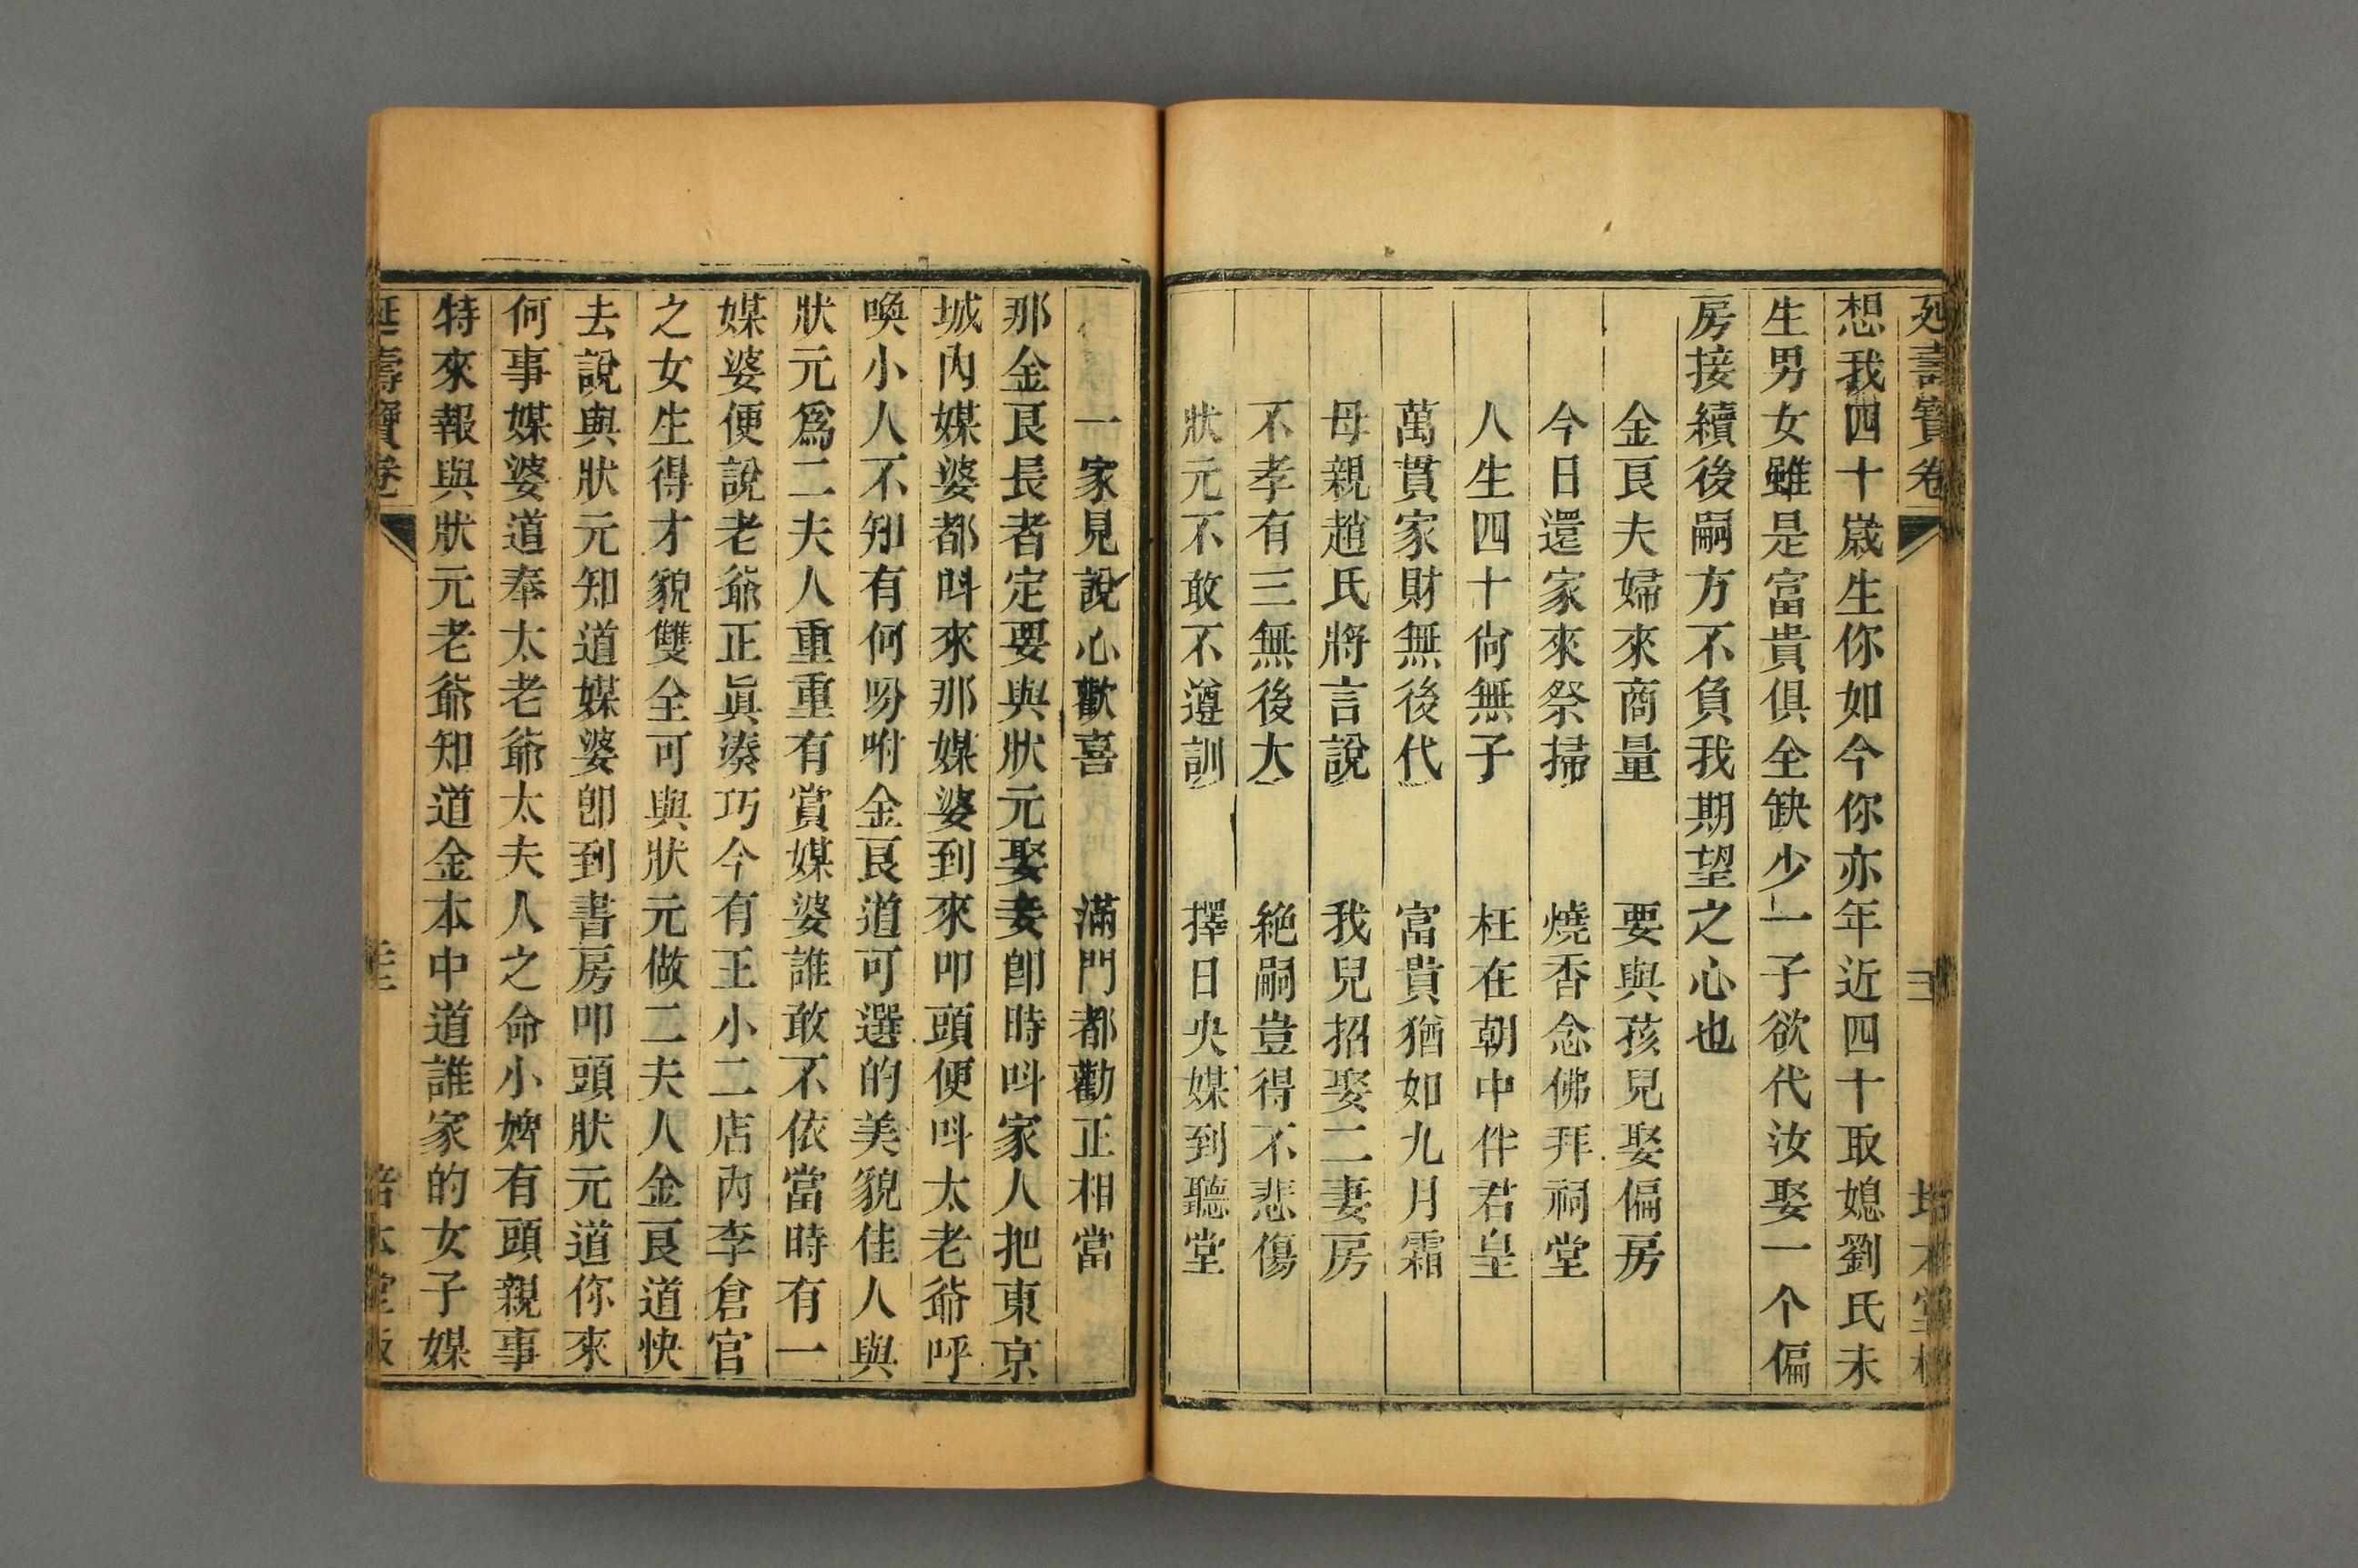 壽寶卷
想我四十歲生你如今你亦年近四十取媳劉氏未
生男女雖是富貴俱全缺少一子欲代汝娶一个偏
房接續後嗣方不負我期望之心也
金艮夫婦來商量　要與孩兒娶偏房
今日還家來祭掃　燒香念佛拜祠堂
人生四十尙無子　枉在朝中伴君皇
萬貫家財無後代　富貴猶如九月霜
母親趙氏將言說　我兒招娶二妻房
不孝有三無後大　絕嗣豈得不悲傷
狀元不敢不遵訓　擇日央媒到聽堂
一家見說心歡喜　滿門都勸正相當
那金艮長者定要與狀元娶妾卽時呌家人把東京
城內媒婆都呌來那媒婆到來叩頭便呌太老爺呼
喚小人不知有何吩咐金艮道可選的美貌佳人與
狀元爲二夫人重重有賞媒婆誰敢不依當時有一
媒婆便說老爺正眞湊巧今有王小二店內李倉官
之女生得才貌雙全可與狀元做二夫人金艮道快
去說與狀元知道媒婆卽到書房叩頭狀元道你來
何事媒婆道奉太老爺太夫人之命小婢有頭親事
特來報與狀元老爺知道金本中道誰家的女子媒
壽寶卷